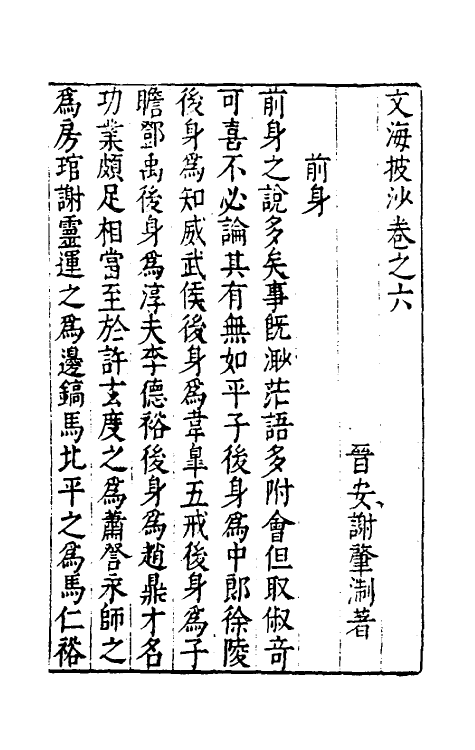 文海披沙卷之六
晉安謝肇淛著
前身
前身之說多矣事旣渺茫語多附會但取俶奇
可喜不必論其有無如平子後身為中郎徐陵
後身為知威武侯後身為韋臯五戒後身為子
瞻鄧禹後身為淳夫李德裕後身為趙鼎才名
功業頗足相當至於許玄度之為蕭詧永師之
為房琯謝靈運之為邊鎬馬北平之為馬仁裕